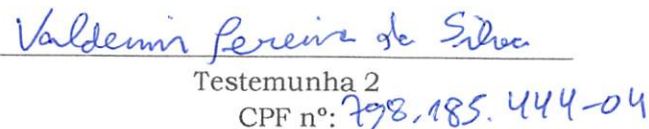 Valdemir Pereira da Silva
Testemunha 2
CPF nº: 798.185.444-04